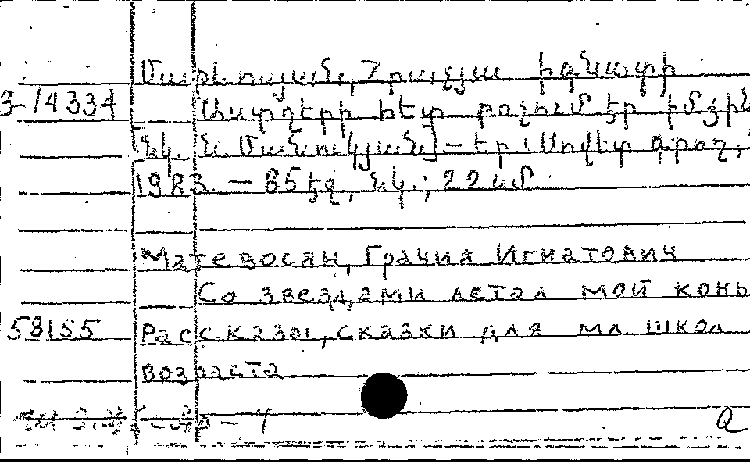 Մաթևոսյան, Հրաչյա Իգնատի
3-14334 Աստղերի հետ թռչում էր իմ ձին
[Նկ. Ն. Մանուկյան] — Եր.: Սովետ. գրող,
1983. — 85 էջ, նկ.; 22 սմ
Матевосян, Грачия Игнатович
Со звездами летал мой конь
58155 Рассказы, сказки для мл школ
возраста
Q